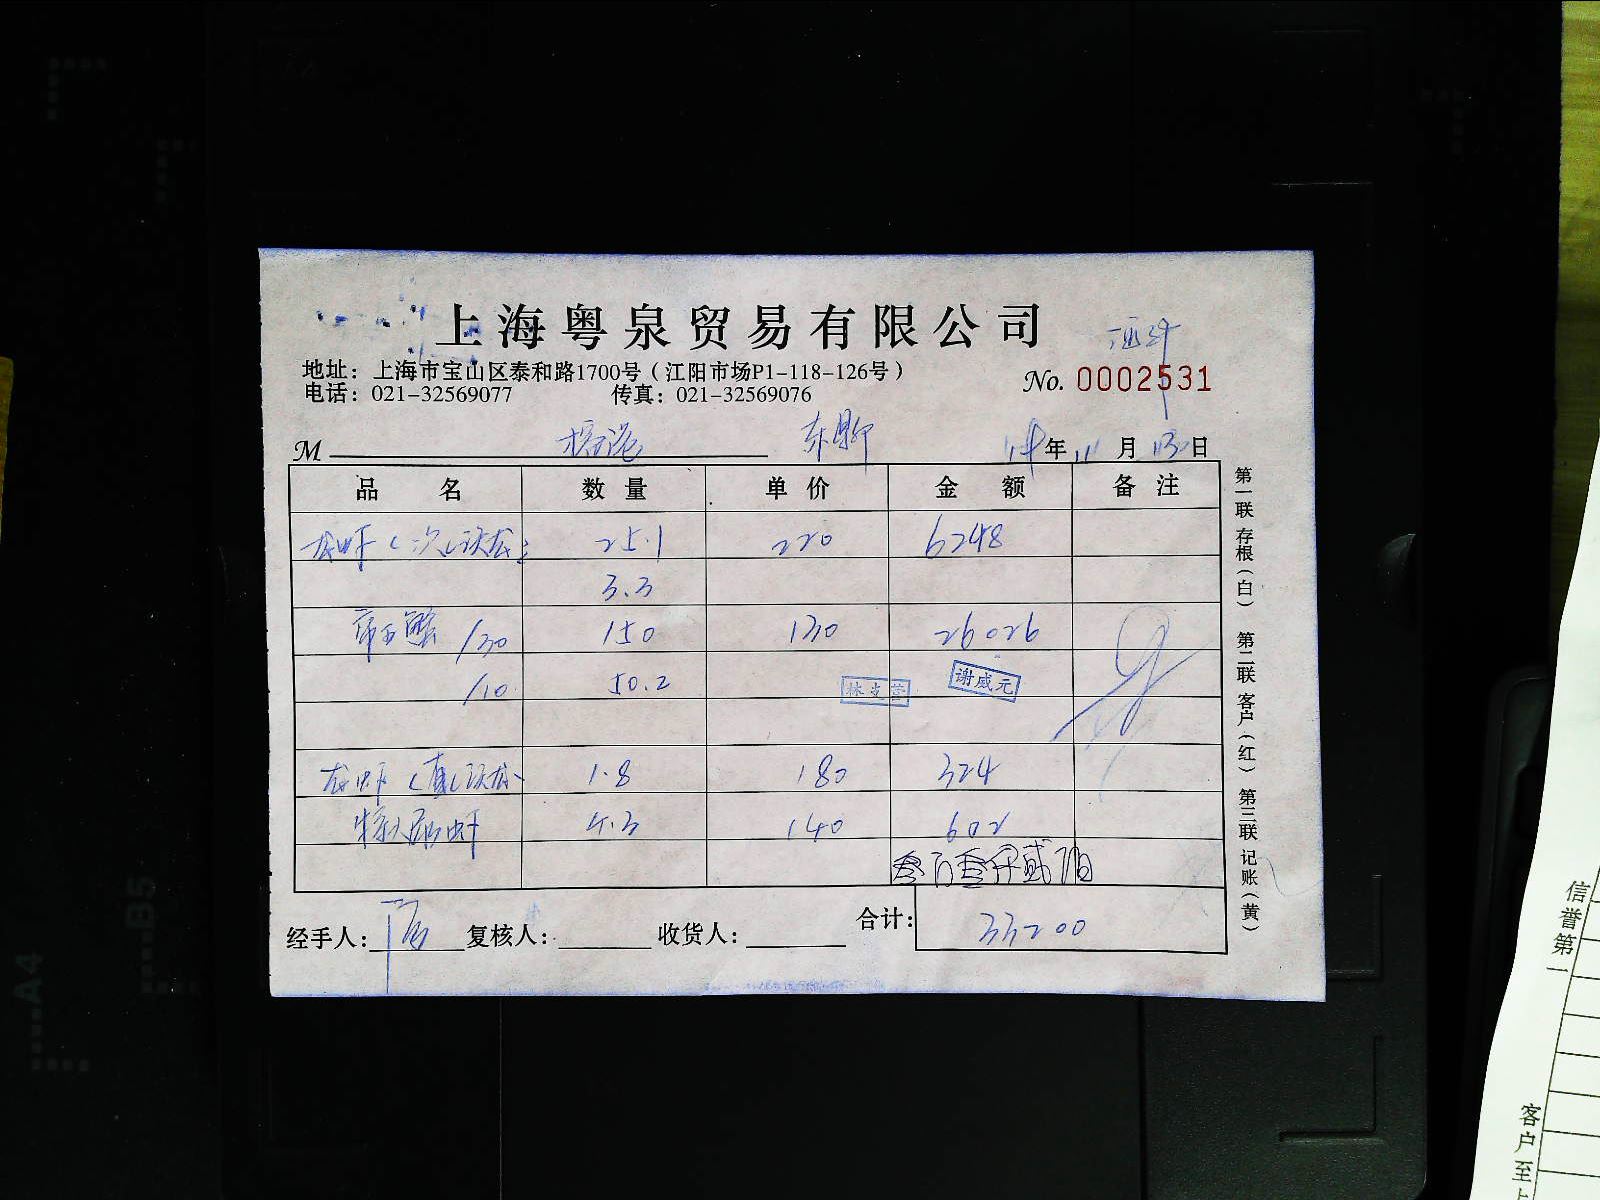 上海粤泉贸易有限公司
地址：上海市宝山区泰和路1700号（江阳市场P1-118-126号）
电话：021-32569077 传真：021-32569076
No. 0002531
M
年 11 月 日
品名 数量 单价 金额 备注
龙虾 25.1 220 6248
3.3
帝王蟹 /30 150 130 26026
/10 50.2
谢威元
龙虾 1.8 180 324
4.3 140 602
叁万叁仟贰佰
合计： 33200
经手人： 复核人： 收货人：
第一联 存根（白） 第二联 客户（红） 第三联 记账（黄）
A4
B5
信誉第一
客户至上